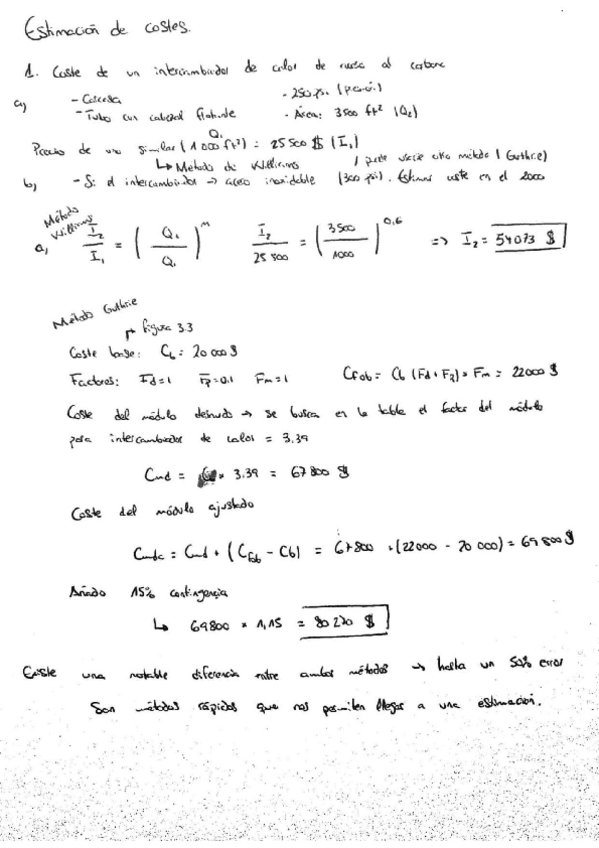 Estimación de costes.
1. Coste de un intercambiador de calor de acero al carbono
a) - Carcasa - 250 psi (presión)
- Tubo con cabezal flotante - Área: 3500 ft² (Q₂)
Q₁
Precio de uno similar (1000 ft²) = 25 500 $ (I₁)
↳ Método de Williams / puede usarse otro método (Guthrie)
b) - Si el intercambiador → acero inoxidable (300 psi). Estimar coste en el 2000
Método Williams
a) I₂ / I₁ = (Q₂ / Q₁)^m I₂ / 25 500 = (3500 / 1000)^0,6 => I₂ = 54073 $
Método Guthrie
↱ figura 3.3
Coste base: Cb = 20 000 $
Factores: Fd = 1 Fp = 0.1 Fm = 1 Cfob = Cb (Fd + Fp) * Fm = 22000 $
Coste del módulo desnudo → se busca en la tabla el factor del módulo
para intercambiador de calor = 3.39
Cmd = * 3.39 = 67 800 $
Coste del módulo ajustado
Cmdc = Cmd + (Cfob - Cb) = 67800 + (22000 - 20 000) = 69 800 $
Añado 15% contingencia
↳ 69800 * 1,15 = 80 270 $
Existe una notable diferencia entre ambos métodos → hasta un 50% error
Son métodos rápidos que nos permiten llegar a una estimación.